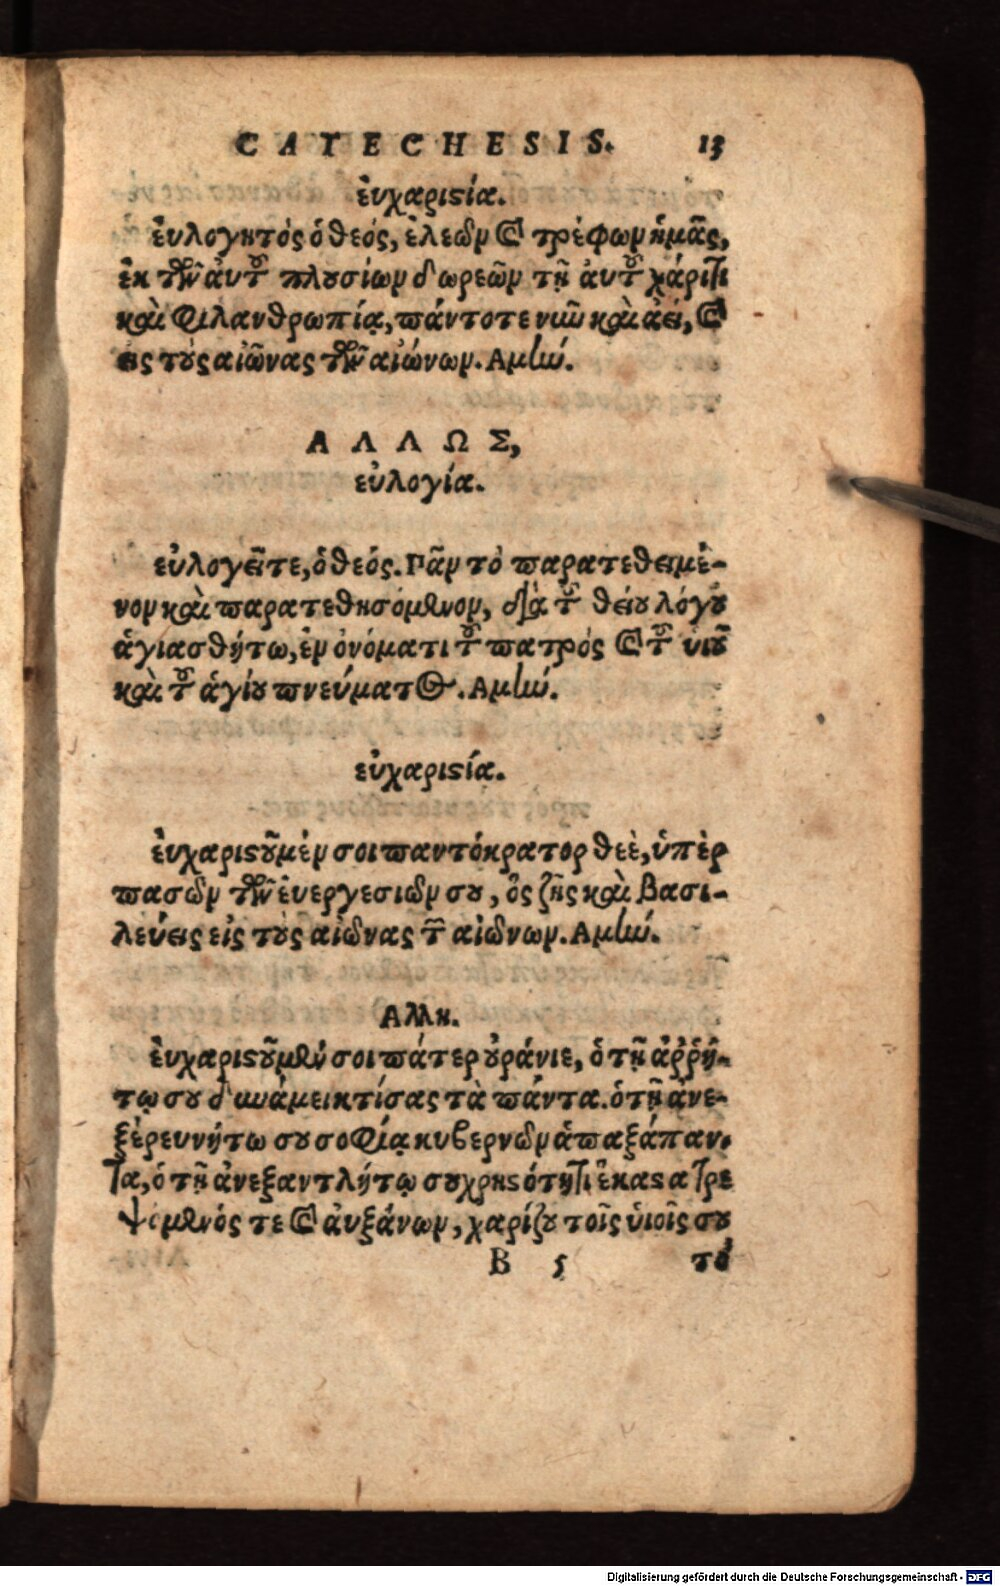 CATECHESIS. 13
ἐυχαριϛία.
ἐυλογητός ὁ θεός, ἐλεῶν καὶ τρέφων ἡμᾶς,
ἐκ τῶν ἀυτοῦ πλουσίων δωρεῶν τῇ ἀυτοῦ χάριτι
καὶ φιλανθρωπίᾳ, πάντοτε νῦν καὶ ἀεί, καὶ
εις τοὺς αἰῶνας τῶν αἰώνων. Αμήν.
ΑΛΛΩΣ,
εὐλογία.
εὐλογεῖτε, ὁ θεός. Πᾶν τὸ παρατεθειμέ-
νον καὶ παρατεθησόμενον, διὰ τοῦ θείου λόγου
ἁγιασθήτω, ἐν ὀνόματι τοῦ πατρός καὶ τοῦ υἱοῦ
καὶ τοῦ ἁγίου πνεύματος. Αμήν.
εὐχαριϛία.
ἐυχαριϛοῦμέν σοι παντόκρατορ θεὲ, ὑπὲρ
πασῶν τῶν ἐυεργεσιῶν σου, ὃς ζῇς καὶ βασι-
λεύεις εἰς τοὺς αἰῶνας τῶν αἰώνων. Αμήν.
Αλλη.
ἐυχαριϛοῦμεν σοι πάτερ οὐράνιε, ὁ τῇ ἀῤῥή-
τῳ σου δυνάμει κτίσας τὰ πάντα. ὁ τῇ ἀνε-
ξερευνήτω σου σοφίᾳ κυβερνῶν ἁπαξάπαν-
τα, ὁ τῇ ἀνεξαντλήτῳ σου χρηϛότητι ἕκαϛα τρε
ψόμενός τε καὶ ἀυξάνων, χαρίζου τοῖς ὑιοῖς σου
B 5 τό
Digitalisierung gefördert durch die Deutsche Forschungsgemeinschaft - DFG